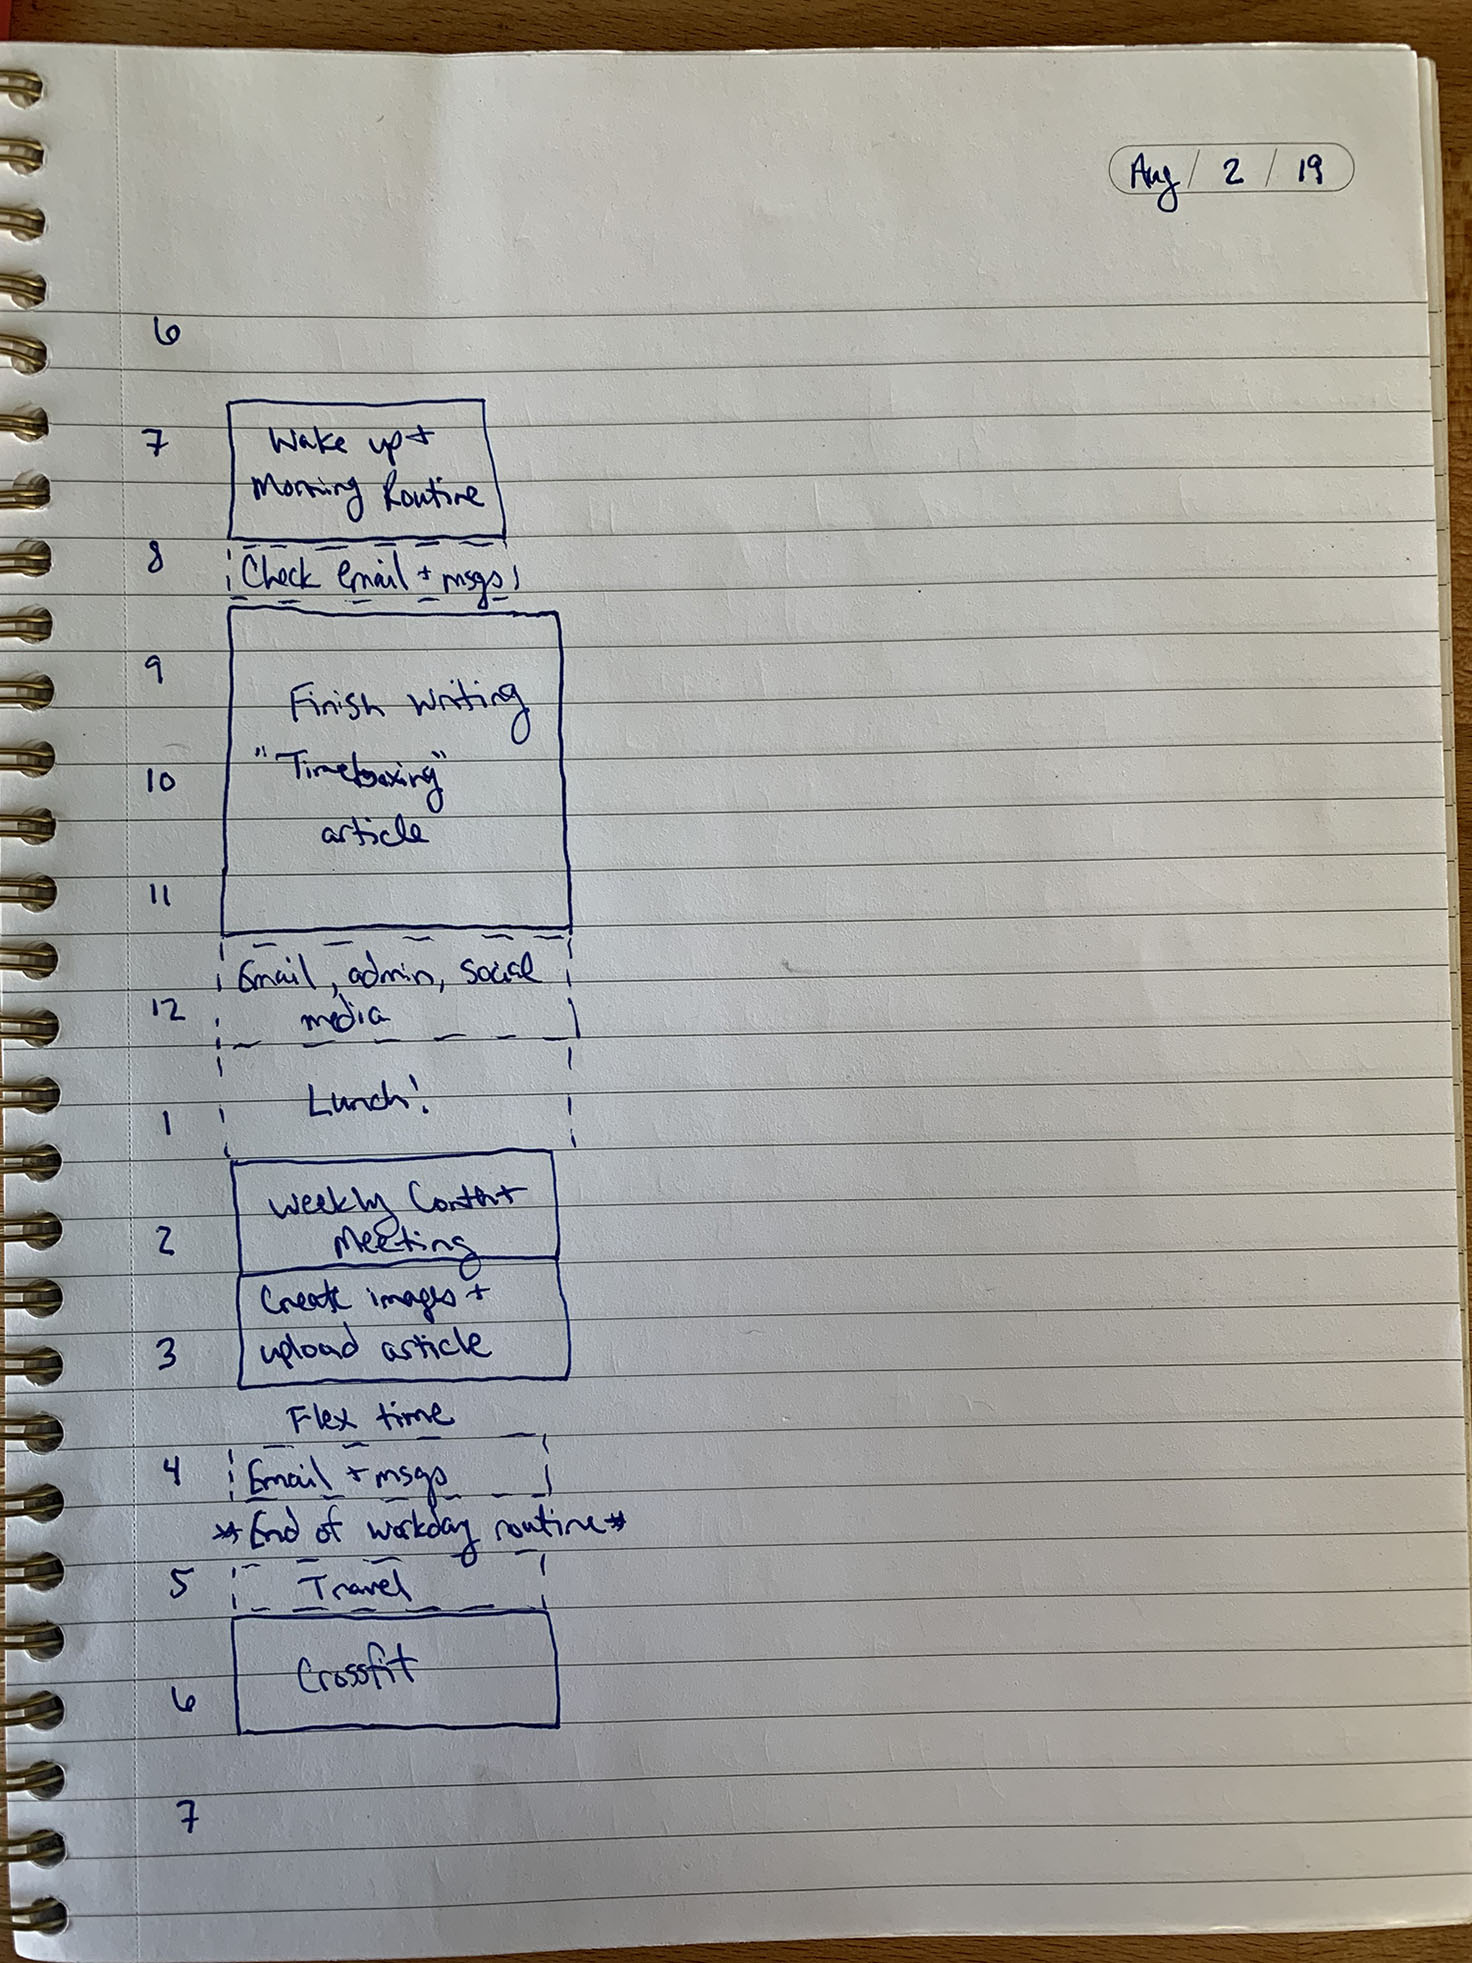 Aug / 2 / 19
6
7 Wake up +
Morning Routine
8 Check email + msgs
9
Finish writing
10 "Timeboxing"
article
11
Email, admin, social
12 media
Lunch!
1
Weekly Content
2 Meeting
Create images +
3 upload article
Flex time
4 Email + msgs
*End of workday routine*
5 Travel
Crossfit
6
7